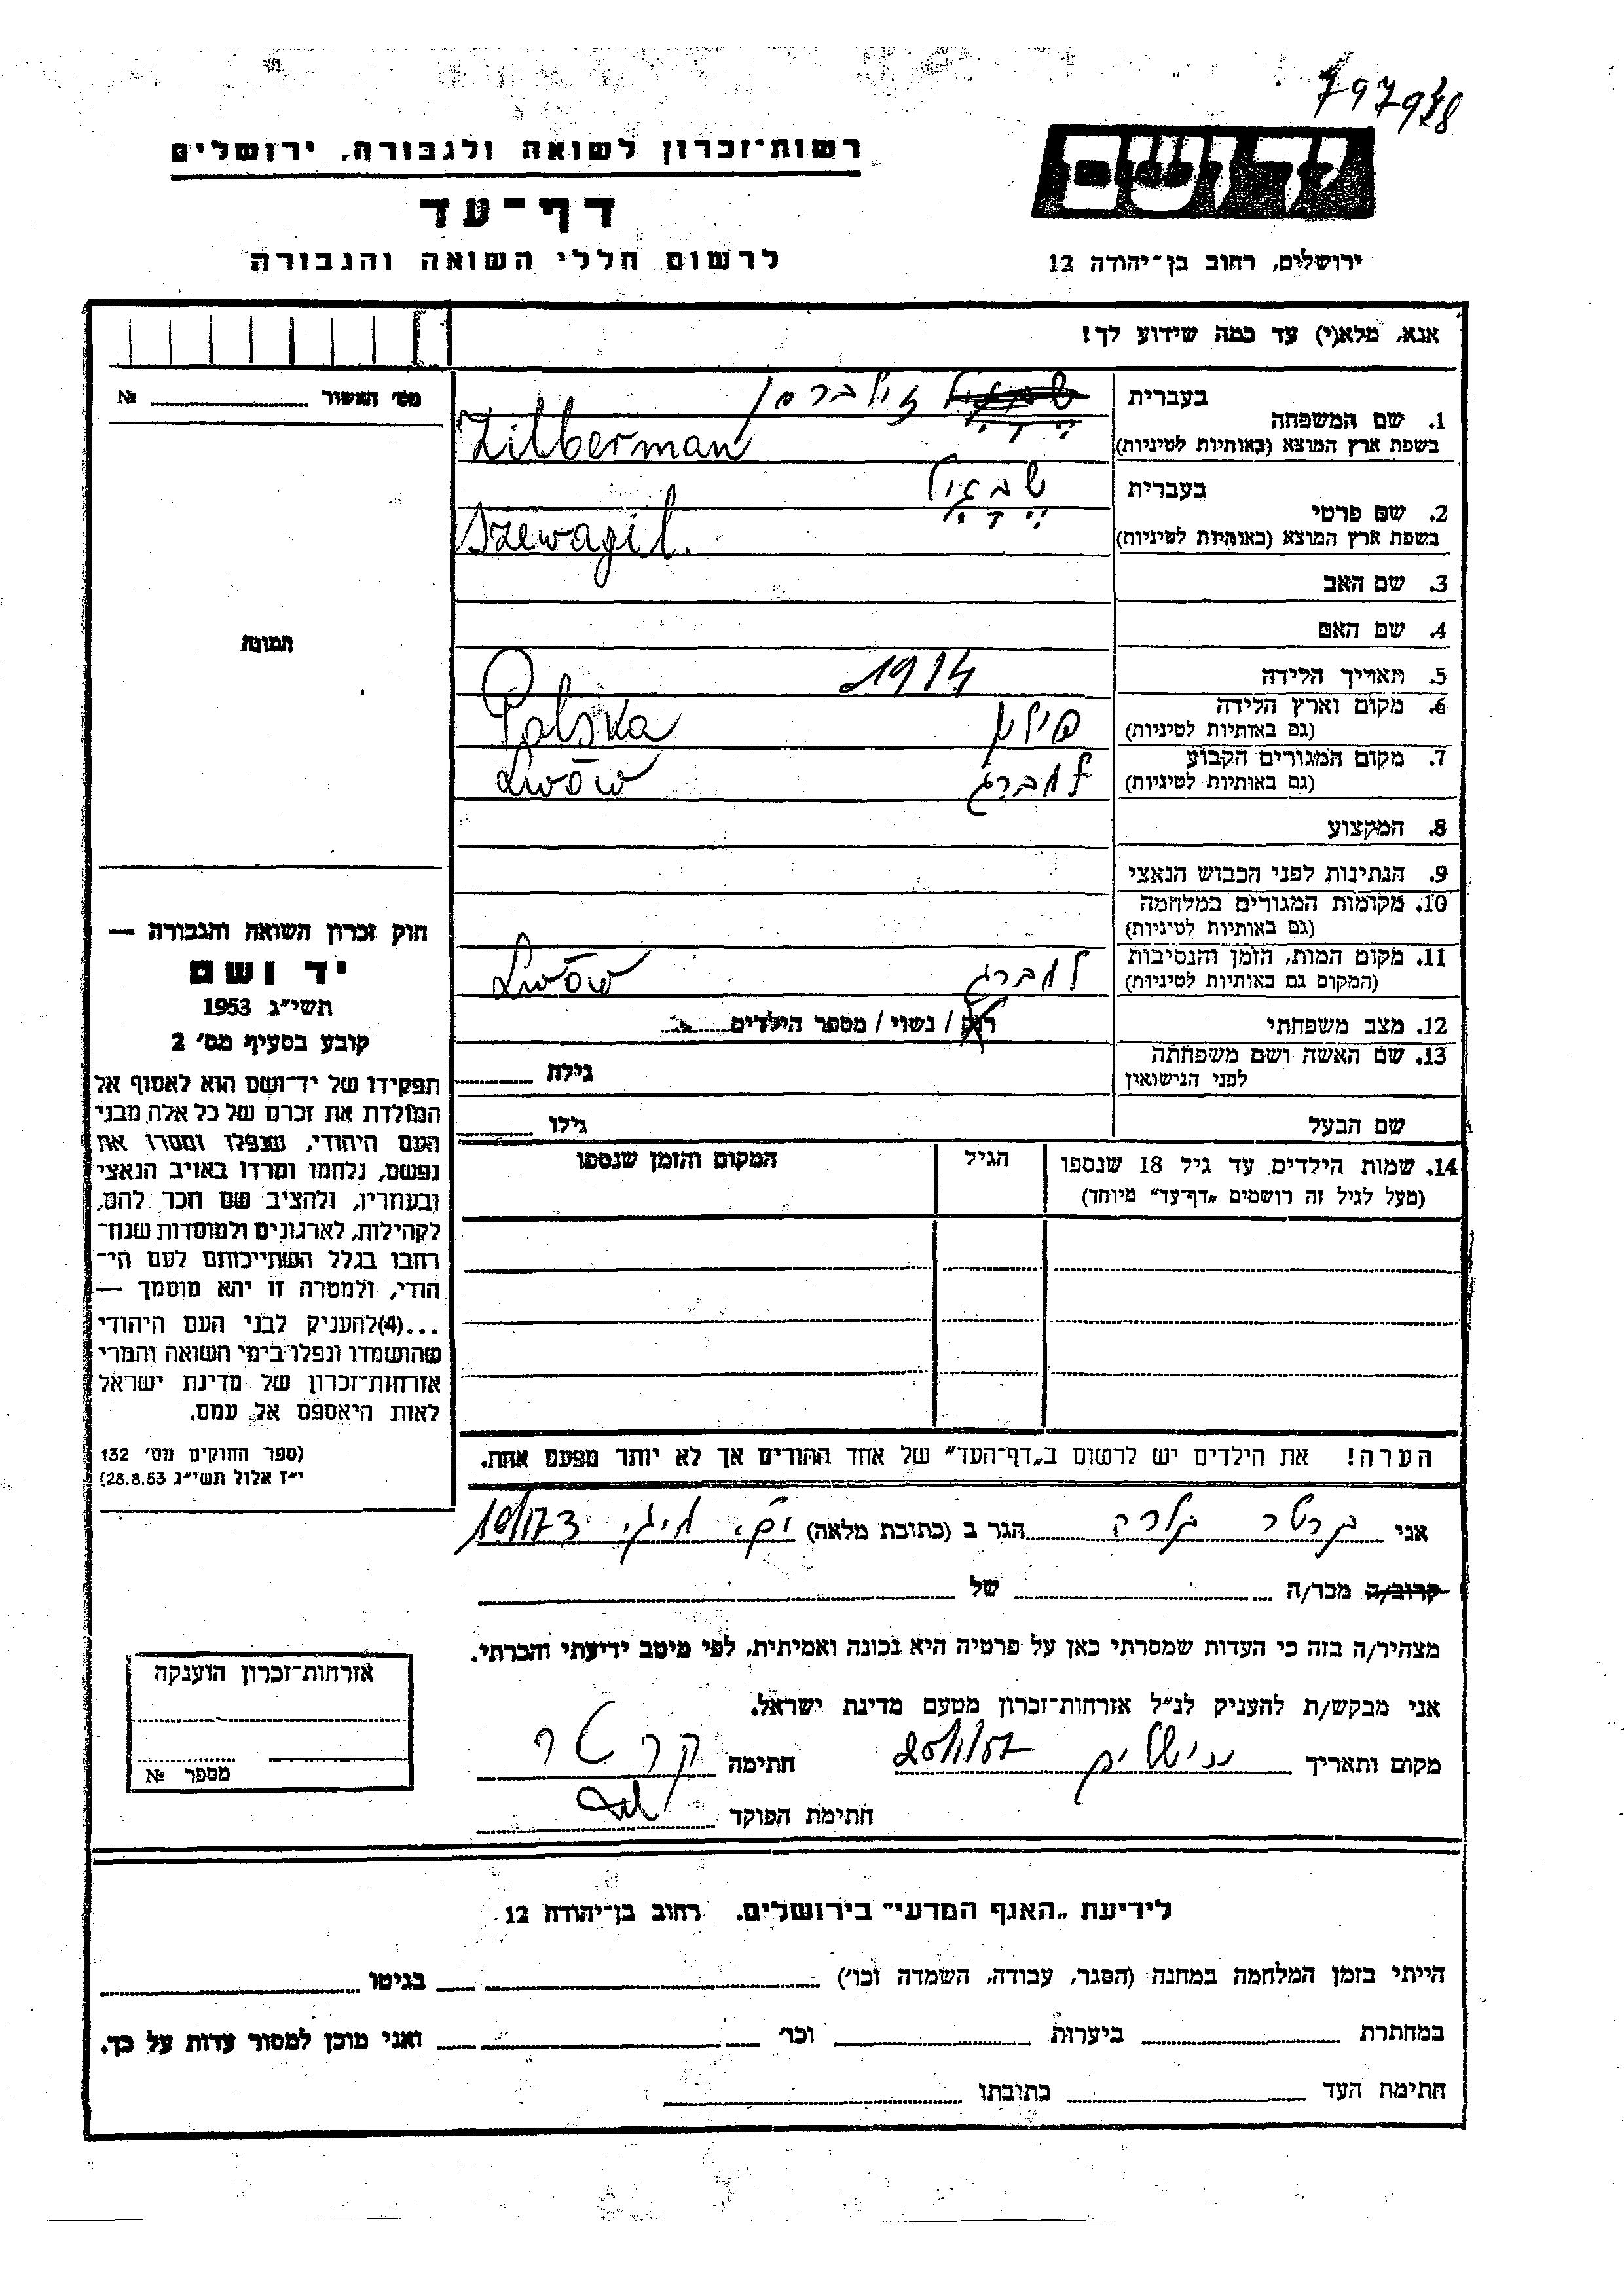 797948
רשות־זכרון לשואה ולגבורה, ירושלים
דף־עד
לרשום חללי השואה והגבורה
ירושלים, רחוב בן־יהודה 12
אנא, מלא(י) עד כמה שידוע לך!
מס׳ האשור № 
1. שם המשפחה
בעברית זילברמן
בשפת ארץ המוצא (באותיות לטיניות) Zilberman
2. שם פרטי
בעברית שבגיל
בשפת ארץ המוצא (באותיות לטיניות) Szewagil.
3. שם האב
4. שם האם
5. תאריך הלידה 1914
6. מקום וארץ הלידה (גם באותיות לטיניות) פולין Polska
7. מקום המגורים הקבוע (גם באותיות לטיניות) למברג Lwów
8. המקצוע
9. הנתינות לפני הכבוש הנאצי
10. מקומות המגורים במלחמה
(גם באותיות לטיניות)
11. מקום המות, הזמן והנסיבות
(המקום גם באותיות לטיניות) למברג Lwów
12. מצב משפחתי רווק / נשוי / מספר הילדים
13. שם האשה ושם משפחתה
לפני הנישואין גילה
שם הבעל גילו
14. שמות הילדים עד גיל 18 שנספו הגיל המקום והזמן שנספו
(מעל לגיל זה רושמים „דף־עד״ מיוחד)
הערה! את הילדים יש לרשום ב„דף־העד״ של אחד ההורים אך לא יותר מפעם אחת.
תמונה
חוק זכרון השואה והגבורה —
יד ושם
תשי״ג 1953
קובע בסעיף מס׳ 2
תפקידו של יד־ושם הוא לאסוף אל
המולדת את זכרם של כל אלה מבני
העם היהודי, שנפלו ומסרו את
נפשם, נלחמו ומרדו באויב הנאצי
ובעוזריו, ולהציב שם וזכר להם,
לקהילות, לארגונים ולמוסדות שנח־
רבו בגלל השתייכותם לעם הי־
הודי, ולמטרה זו יהא מוסמך —
...(4)להעניק לבני העם היהודי
שהושמדו ונפלו בימי השואה והמרי
אזרחות־זכרון של מדינת ישראל
לאות היאספם אל עמם.
(ספר החוקים מס׳ 132
י״ז אלול תשי״ג 28.8.53)
אני קרטר הגר ב (כתובת מלאה) 10/173
קרוב/ה מכר/ה של
מצהיר/ה בזה כי העדות שמסרתי כאן על פרטיה היא נכונה ואמיתית, לפי מיטב ידיעתי והכרתי.
אני מבקש/ת להעניק לנ״ל אזרחות־זכרון מטעם מדינת ישראל.
מקום ותאריך ירושלים 20/1/57 חתימה קרטר
חתימת הפוקד
אזרחות־זכרון הוענקה
מספר №
לידיעת „האגף המדעי״ בירושלים. רחוב בן־יהודה 12
הייתי בזמן המלחמה במחנה (הסגר, עבודה, השמדה וכו׳) בגיטו
במחתרת ביערות וכו׳ ואני מוכן למסור עדות על כך.
חתימת העד כתובתו